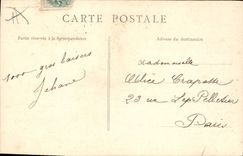 CARTE POSTALE
Partie réservée à la Correspondance
Adresse du destinataire
1000 gros baisers
Jehane
Mademoiselle
Alice Crapotte
23 rue Le Pelletier
Paris